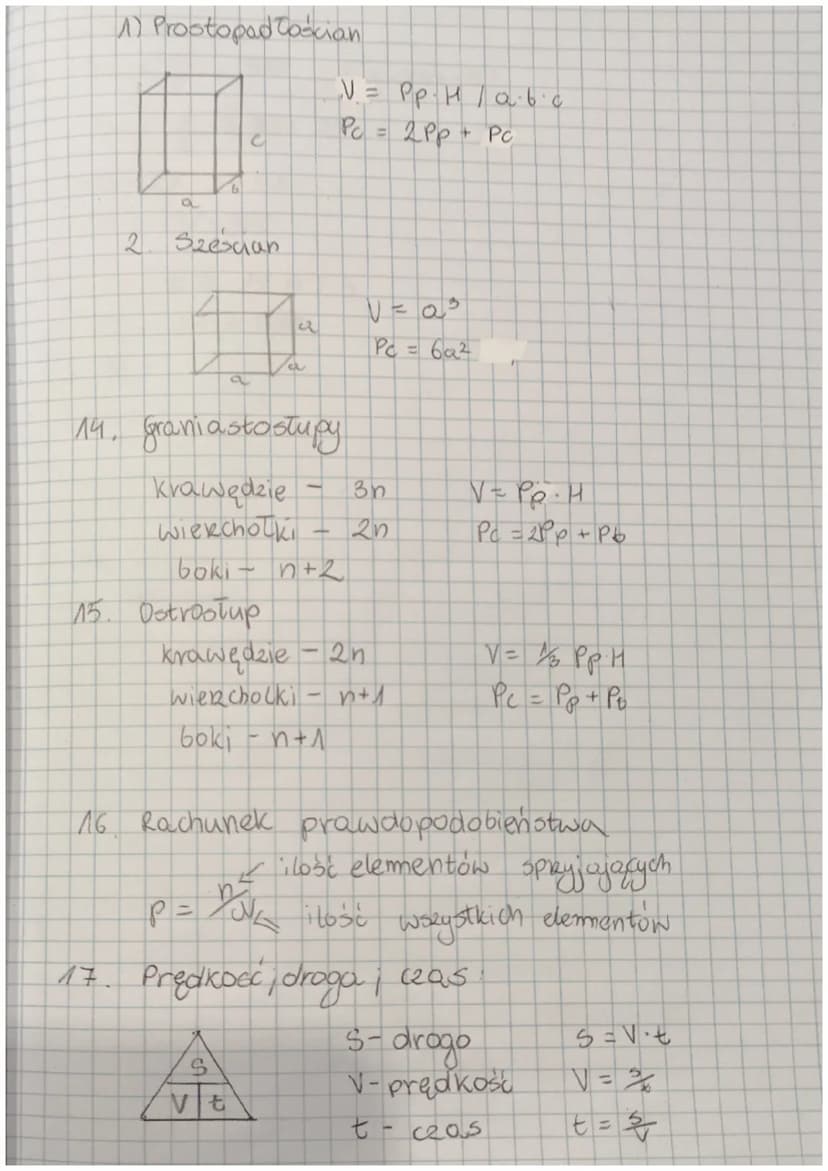 1) Prostopadłościan
V = Pp·H / a·b·c
Pc = 2Pp + Pc
c
b
a
2. Sześcian
V = a³
a
Pc = 6a²
a
a
14. graniastosłupy
krawędzie - 3n V = Pp·H
wierzchołki - 2n Pc = 2Pp + Pb
boki - n+2
15. Ostrosłup
krawędzie - 2n V = 1/3 Pp·H
wierzchołki - n+1 Pc = Pp + Pb
boki - n+1
16. Rachunek prawdopodobieństwa
ilość elementów sprzyjających
p = n/N ilość wszystkich elementów
17. Prędkość, droga i czas
S - droga s = V·t
S
V - prędkość V = s/t
V t
t - czas t = s/V